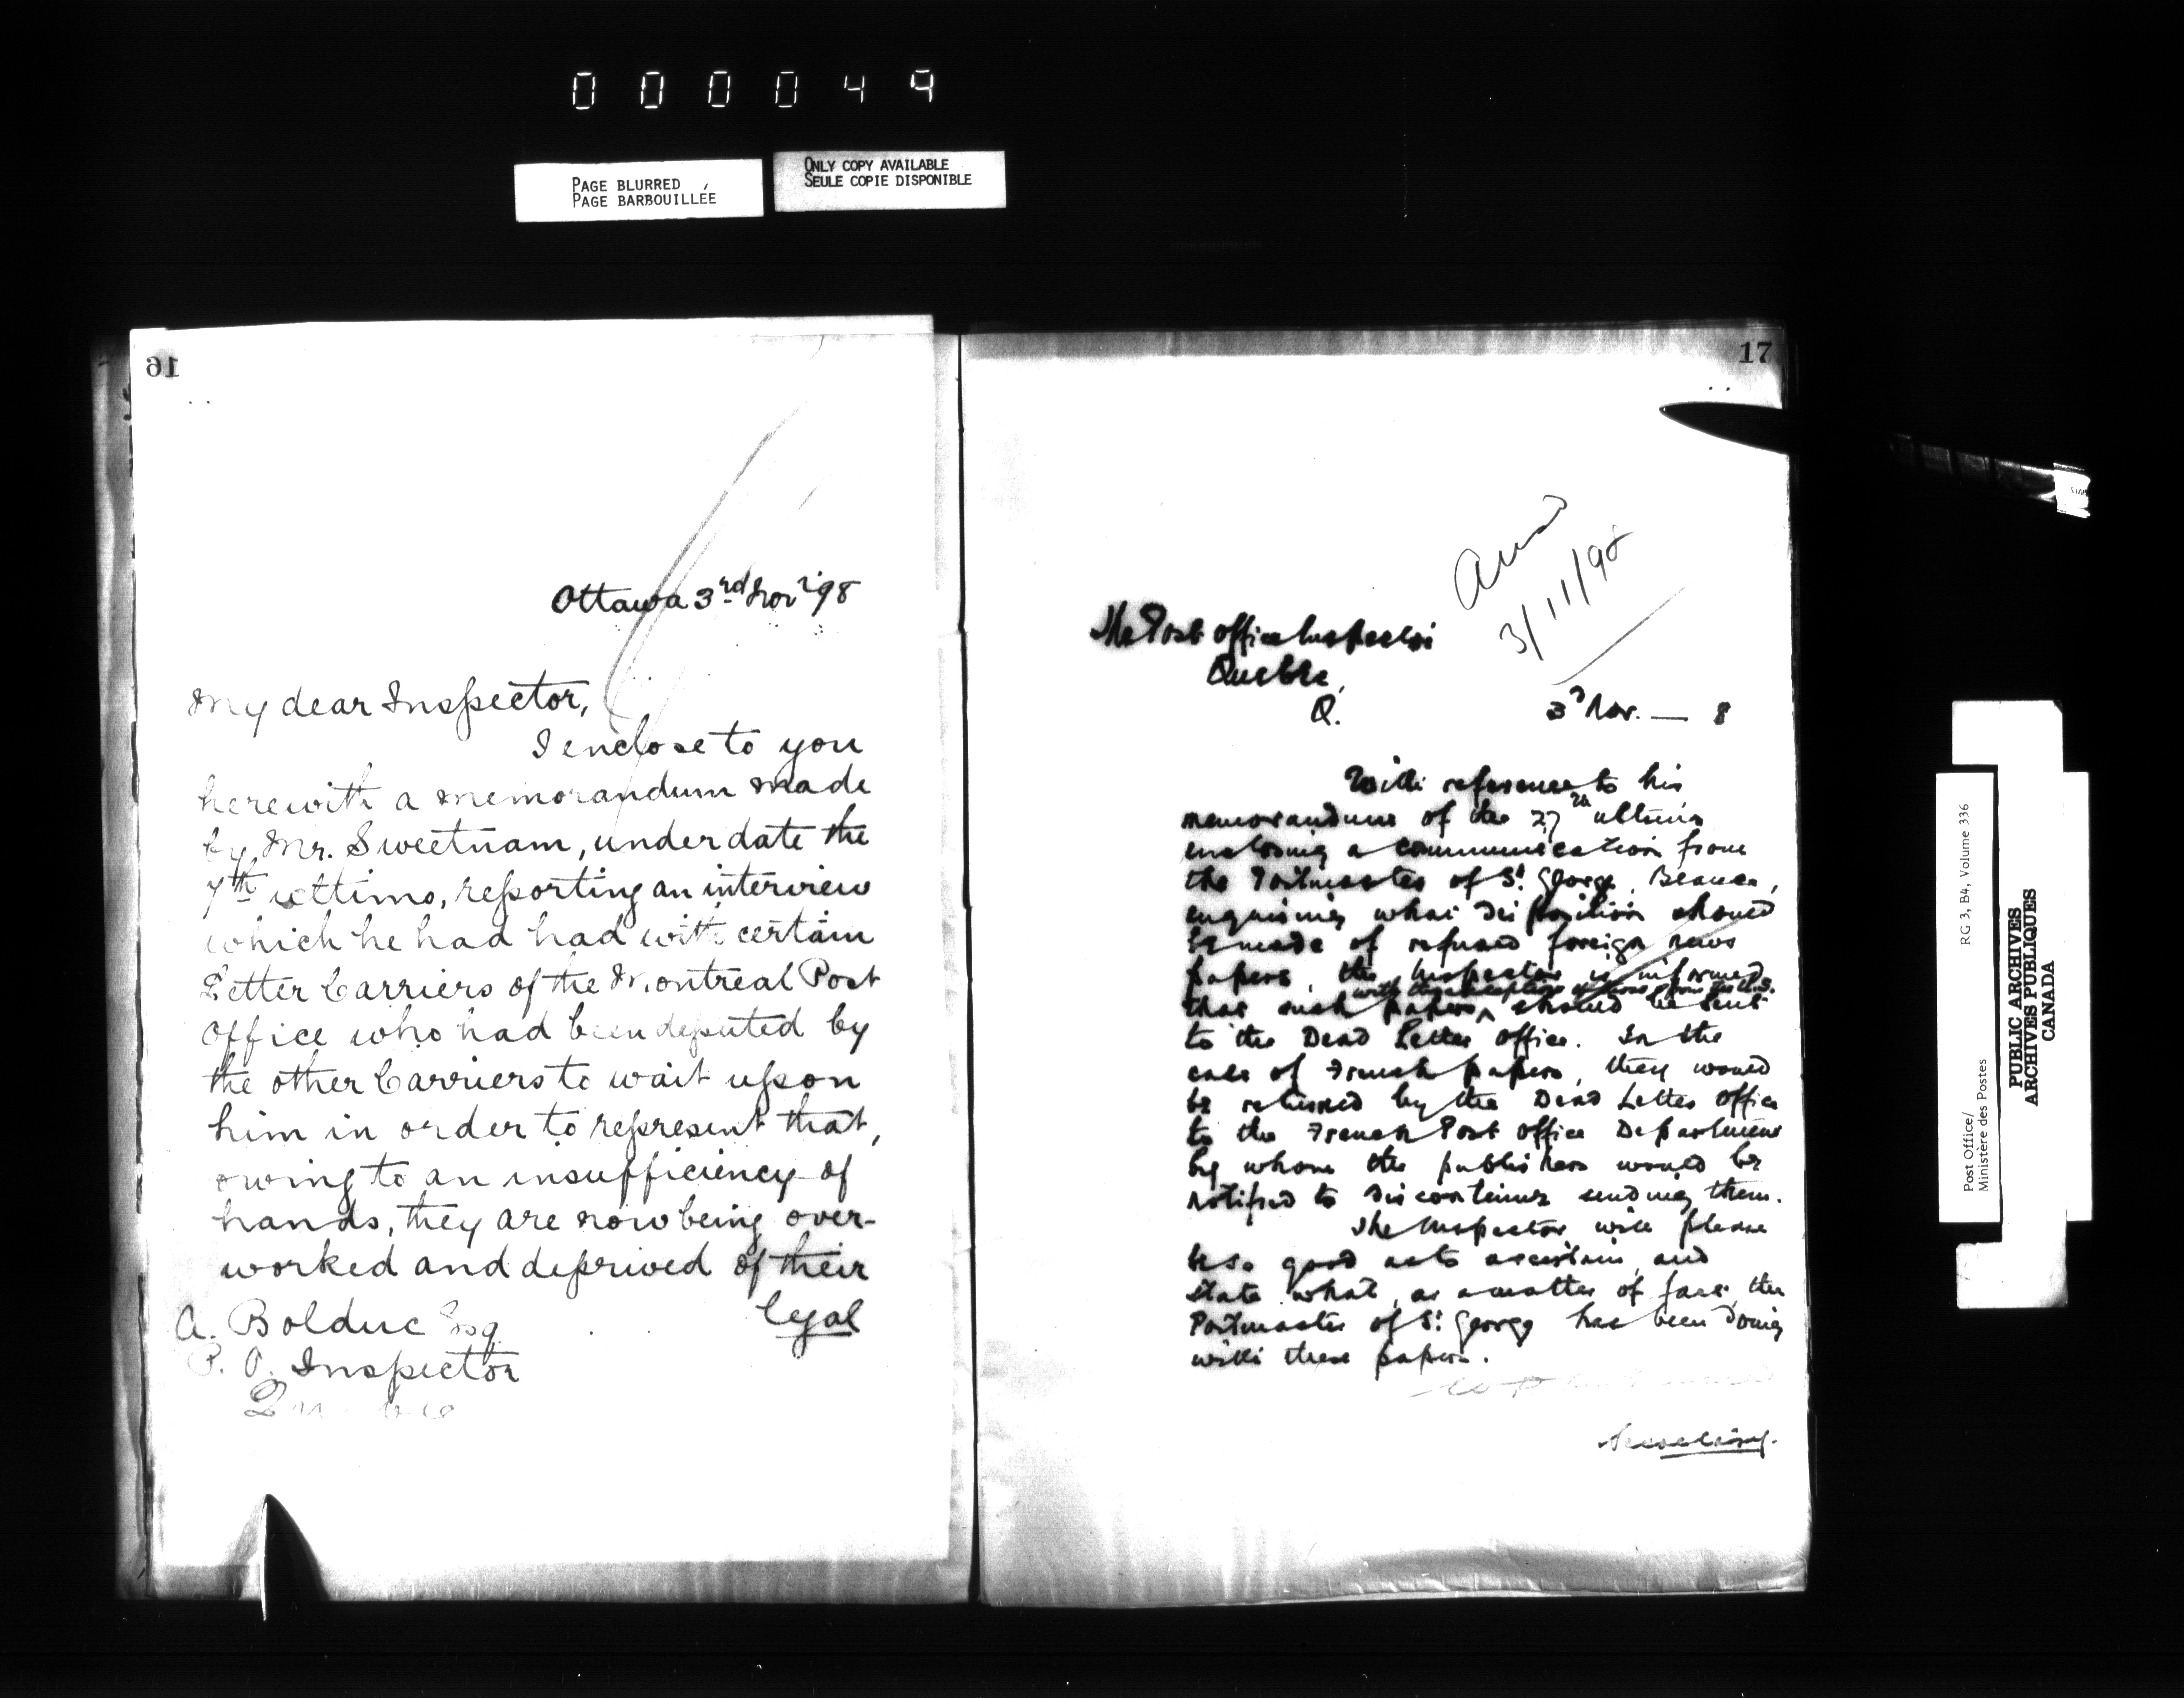 000049
PAGE BLURRED
PAGE BARBOUILLÉE
ONLY COPY AVAILABLE
SEULE COPIE DISPONIBLE
16
Ottawa 3rd Nov '98
My dear Inspector,
I enclose to you
herewith a memorandum made
by Mr. Sweetnam, under date the
7th ultimo, reporting an interview
which he had had with certain
Letter Carriers of the Montreal Post
Office who had been deputed by
the other Carriers to wait upon
him in order to represent that,
owing to an insufficiency of
hands, they are now being over-
worked and deprived of their
legal
A. Bolduc Esq
P. O. Inspector
Quebec
17
3/11/98
The Post Office Inspector
Quebec,
Q.
3d Nov. — 8
With reference to his
memorandum of the 27th ultimo
enclosing a communication from
the Postmaster of St. George, Beauce,
enquiring what disposition should
be made of refused foreign news
papers, the Inspector is informed
that such papers ^ with the exception of those from the U.S. should be sent
to the Dead Letter Office. In the
case of French papers, they would
be returned by the Dead Letter Office
to the French Post Office Department
by whom the publishers would be
notified to discontinue sending them.
The Inspector will please
be so good as to ascertain, and
state what, as a matter of fact, the
Postmaster of St. George has been doing
with these papers.
Post Office/
Ministère des Postes
RG 3, B4, Volume 336
PUBLIC ARCHIVES
ARCHIVES PUBLIQUES
CANADA